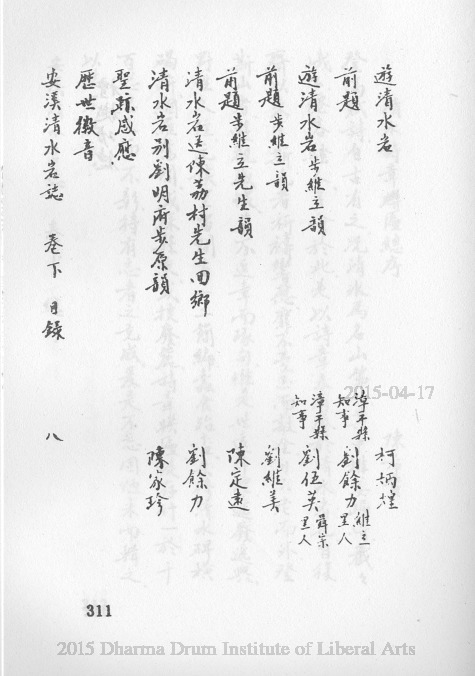 遊清水岩 柯炳煌
前題 漳平縣知事 劉餘力 維立 里人
遊清水岩步維立韻 漳平縣知事 劉伍英 舜崇 里人
前題步維立韻 劉維美
前題步維立先生韻 陳定遠
清水岩送陳荔村先生回鄉 劉餘力
清水岩別劉明府步原韻 陳家珍
聖蹟感應
歷世徽音
安溪清水岩誌 卷下 目錄 八
311
2015-04-17
2015 Dharma Drum Institute of Liberal Arts